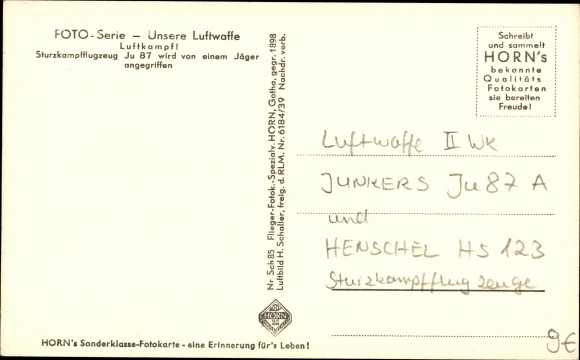 FOTO-Serie – Unsere Luftwaffe
Luftkampf!
Sturzkampfflugzeug Ju 87 wird von einem Jäger
angegriffen
Nr Sch 85 Flieger-Fotok.-Spezialv. HORN, Gotha, gegr. 1898
Luftbild H. Schaller, freig. d. RLM. Nr. 6184/39 Nachdr. verb.
Schreibt
und sammelt
HORN's
bekannte
Qualitäts
Fotokarten
sie bereiten
Freude!
Luftwaffe II WK
JUNKERS Ju 87 A
und
HENSCHEL HS 123
Sturzkampfflugzeuge
HORN
HORN's Sonderklasse-Fotokarte - eine Erinnerung für's Leben!
9€